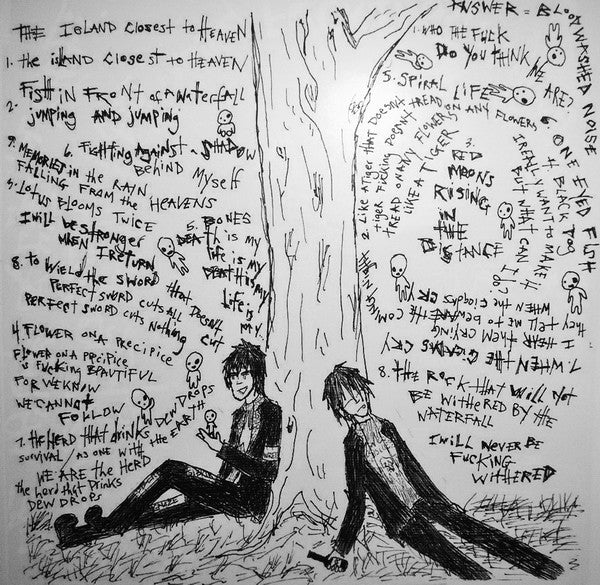 THE ISLAND CLOSEST to HEAVEN
1. the island closest to HEAVEN
2. FISH IN FRONT of A WATERFALL
JUMPING AND JUMPING
6. FIGHTING AGAINST A SHADOW
BEHIND MYSELF
9. MEMORIES IN the RAIN
FALLING FROM the HEAVENS
3. LOTUS BLOOMS TWICE
I will be stronger
WHEN I RETURN
5. BONES
DEATH is my
life is my
DEATH is my
Life is
my
8. TO WIELD the SWORD that DOESN'T
CUT
PERFECT SWORD CUTS ALL
PERFECT SWORD CUTS NOTHING
4. FLOWER ON A PRECIPICE
FLOWER ON A PRECIPICE
is FUCKING BEAUTIFUL
FOR WE KNOW
WE CANNOT
FOLLOW
7. THE HERD THAT DRINKS
DEW DROPS
SURVIVAL / AS ONE WITH
the EARTH
WE ARE the HERD
the herd that DRINKS
DEW DROPS
ANSWER = BLOOD
WASHED NOISE
1. WHO THE FUCK
DO YOU THINK
WE ARE?
5. SPIRAL LIFE
2. Like A TIGER THAT DOESN'T TREAD ON ANY FLOWERS
tiger FUCKING DOESN'T
TREAD ON ANY FLOWERS
LIKE A TIGER
3. RED
MOONS
RISING
IN
THE
DISTANCE
6. ONE EYED FISH
4. BLACK FOG
I REALLY WANT TO MAKE it
BUT WHAT CAN I do?
7. WHEN THE GRAVES CRY
I HEAR THEM CRYING
they tell me to
WHEN the
CRY
8. THE ROCK THAT Will NOT
BE WITHERED BY the
WATERFALL
I Will NEVER BE
FUCKING
WITHERED